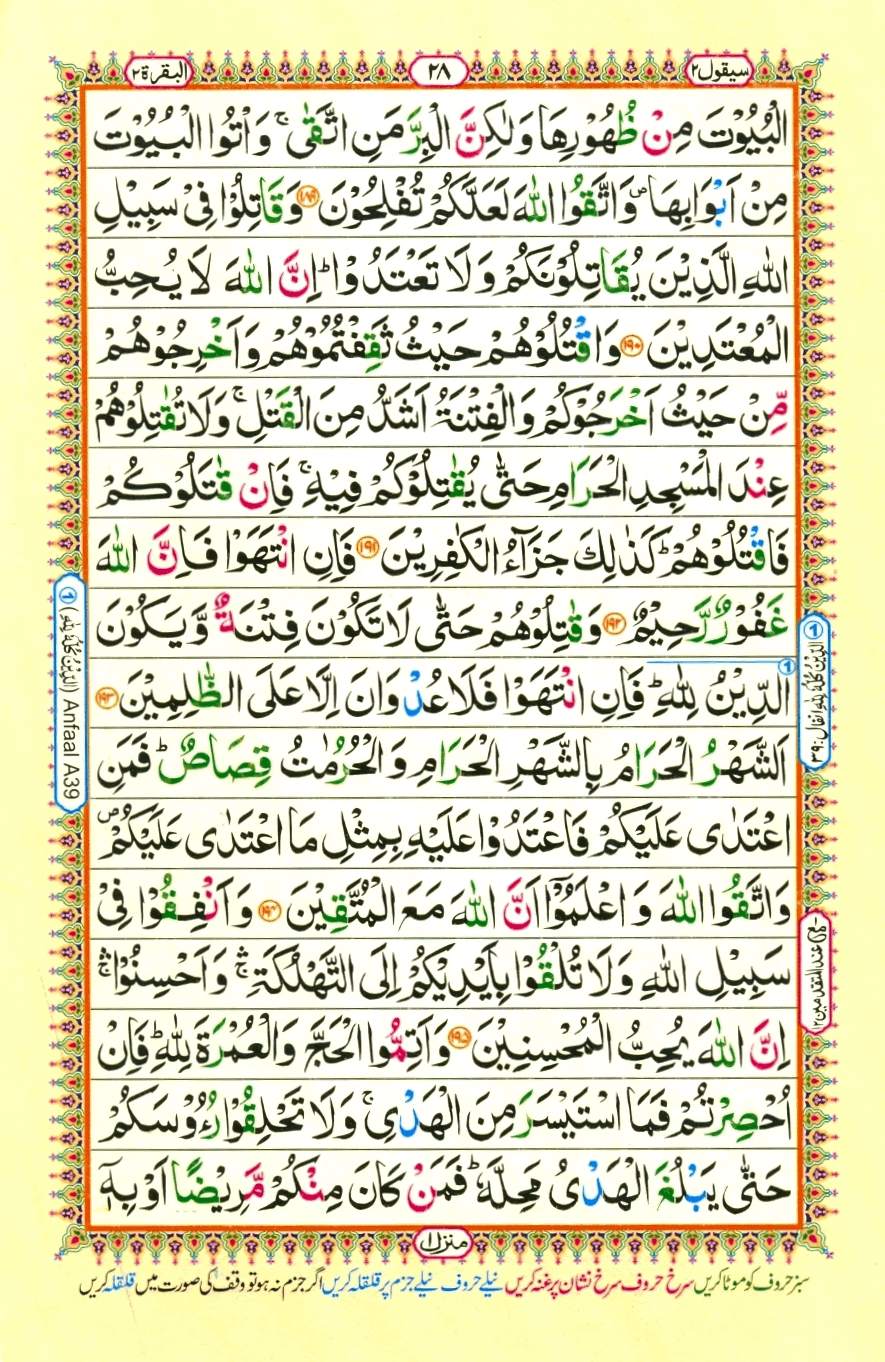 سيقول٢
٢٨
البقرة٢
الْبُيُوْتَ مِنْ ظُهُوْرِهَا وَلٰكِنَّ الْبِرَّ مَنِ اتَّقٰى ۚ وَاْتُوا الْبُيُوْتَ
مِنْ اَبْوَابِهَا ۪ وَاتَّقُوا اللّٰهَ لَعَلَّكُمْ تُفْلِحُوْنَ ١٨٩ وَقَاتِلُوْا فِىْ سَبِيْلِ
اللّٰهِ الَّذِيْنَ يُقَاتِلُوْنَكُمْ وَلَا تَعْتَدُوْا ؕ اِنَّ اللّٰهَ لَا يُحِبُّ
الْمُعْتَدِيْنَ ١٩٠ وَاقْتُلُوْهُمْ حَيْثُ ثَقِفْتُمُوْهُمْ وَاَخْرِجُوْهُمْ
مِّنْ حَيْثُ اَخْرَجُوْكُمْ وَالْفِتْنَةُ اَشَدُّ مِنَ الْقَتْلِ ۚ وَلَا تُقٰتِلُوْهُمْ
عِنْدَ الْمَسْجِدِ الْحَرَامِ حَتّٰى يُقٰتِلُوْكُمْ فِيْهِ ۚ فَاِنْ قٰتَلُوْكُمْ
فَاقْتُلُوْهُمْ ؕ كَذٰلِكَ جَزَآءُ الْكٰفِرِيْنَ ١٩١ فَاِنِ انْتَهَوْا فَاِنَّ اللّٰهَ
غَفُوْرٌ رَّحِيْمٌ ١٩٢ وَقٰتِلُوْهُمْ حَتّٰى لَا تَكُوْنَ فِتْنَةٌ وَّيَكُوْنَ
الدِّيْنُ لِلّٰهِ ؕ فَاِنِ انْتَهَوْا فَلَا عُدْوَانَ اِلَّا عَلَى الظّٰلِمِيْنَ ١٩٣
اَلشَّهْرُ الْحَرَامُ بِالشَّهْرِ الْحَرَامِ وَالْحُرُمٰتُ قِصَاصٌ ؕ فَمَنِ
اعْتَدٰى عَلَيْكُمْ فَاعْتَدُوْا عَلَيْهِ بِمِثْلِ مَا اعْتَدٰى عَلَيْكُمْ ۪
وَاتَّقُوا اللّٰهَ وَاعْلَمُوْٓا اَنَّ اللّٰهَ مَعَ الْمُتَّقِيْنَ ١٩٤ وَاَنْفِقُوْا فِىْ
سَبِيْلِ اللّٰهِ وَلَا تُلْقُوْا بِاَيْدِيْكُمْ اِلَى التَّهْلُكَةِ ۛ وَاَحْسِنُوْا ۛ
اِنَّ اللّٰهَ يُحِبُّ الْمُحْسِنِيْنَ ١٩٥ وَاَتِمُّوا الْحَجَّ وَالْعُمْرَةَ لِلّٰهِ ؕ فَاِنْ
اُحْصِرْتُمْ فَمَا اسْتَيْسَرَ مِنَ الْهَدْىِ ۚ وَلَا تَحْلِقُوْا رُءُوْسَكُمْ
حَتّٰى يَبْلُغَ الْهَدْىُ مَحِلَّهٗ ؕ فَمَنْ كَانَ مِنْكُمْ مَّرِيْضًا اَوْ بِهٖٓ
١ الدِّيْنُ كُلُّهٗ لِلّٰهِ انفال:٣٩
مع عند المتقدمين١٢
١ (الدِّيْنُ كُلُّهٗ لِلّٰهِ) Anfaal A39
منزل١
سبز حروف کو موٹا کریں سرخ حروف سرخ نشان پر غنہ کریں نیلے حروف نیلے جزم پر قلقلہ کریں اگر جزم نہ ہو تو وقف کی صورت میں قلقلہ کریں